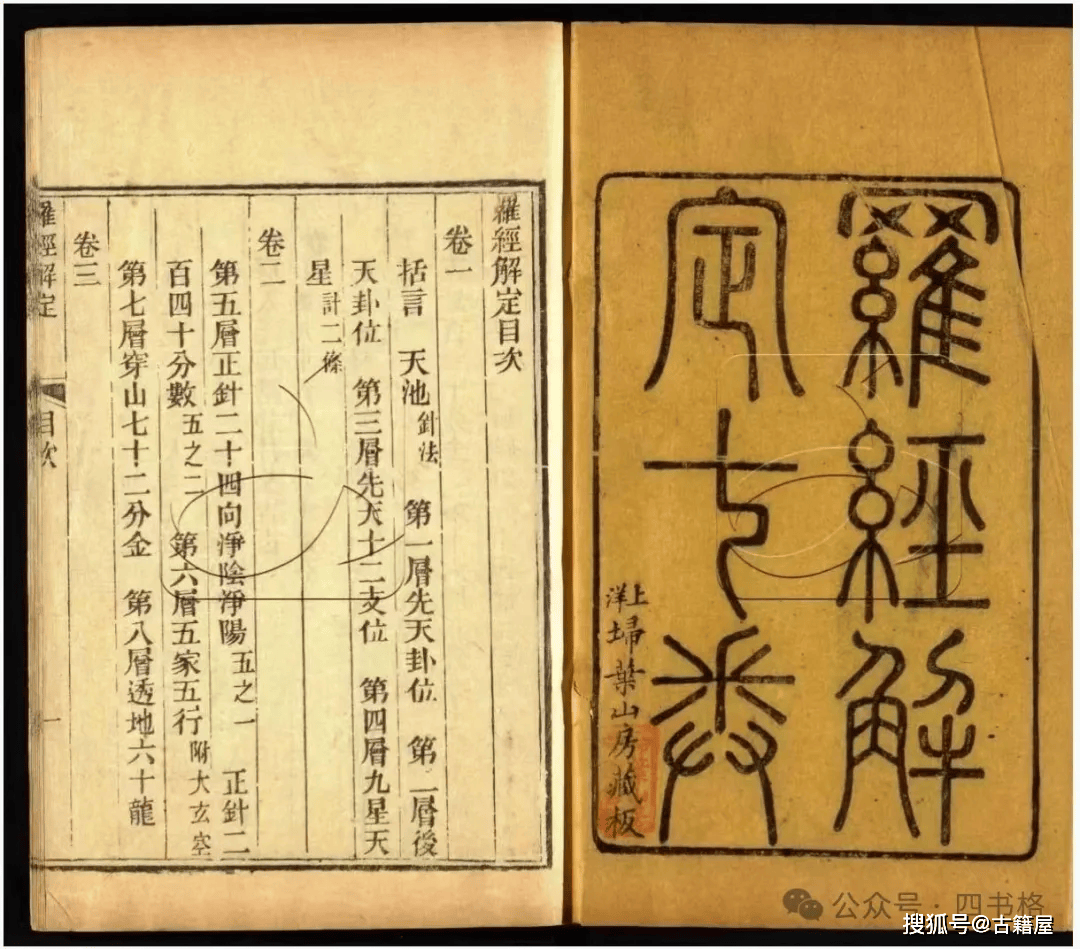 羅經解
定七卷
上洋埽葉山房藏板
羅經解定目次
卷一
括言　天池針法　第一層先天卦位　第二層後
天卦位　第三層先天十二支位　第四層九星天
星計二條
卷二
第五層正針二十四向淨陰淨陽五之一　正針二
百四十分數五之二　第六層五家五行附大玄空
第七層穿山七十二分金　第八層透地六十龍
卷三
羅經解定
目次
一
公众号·四书格
搜狐号@古籍屋